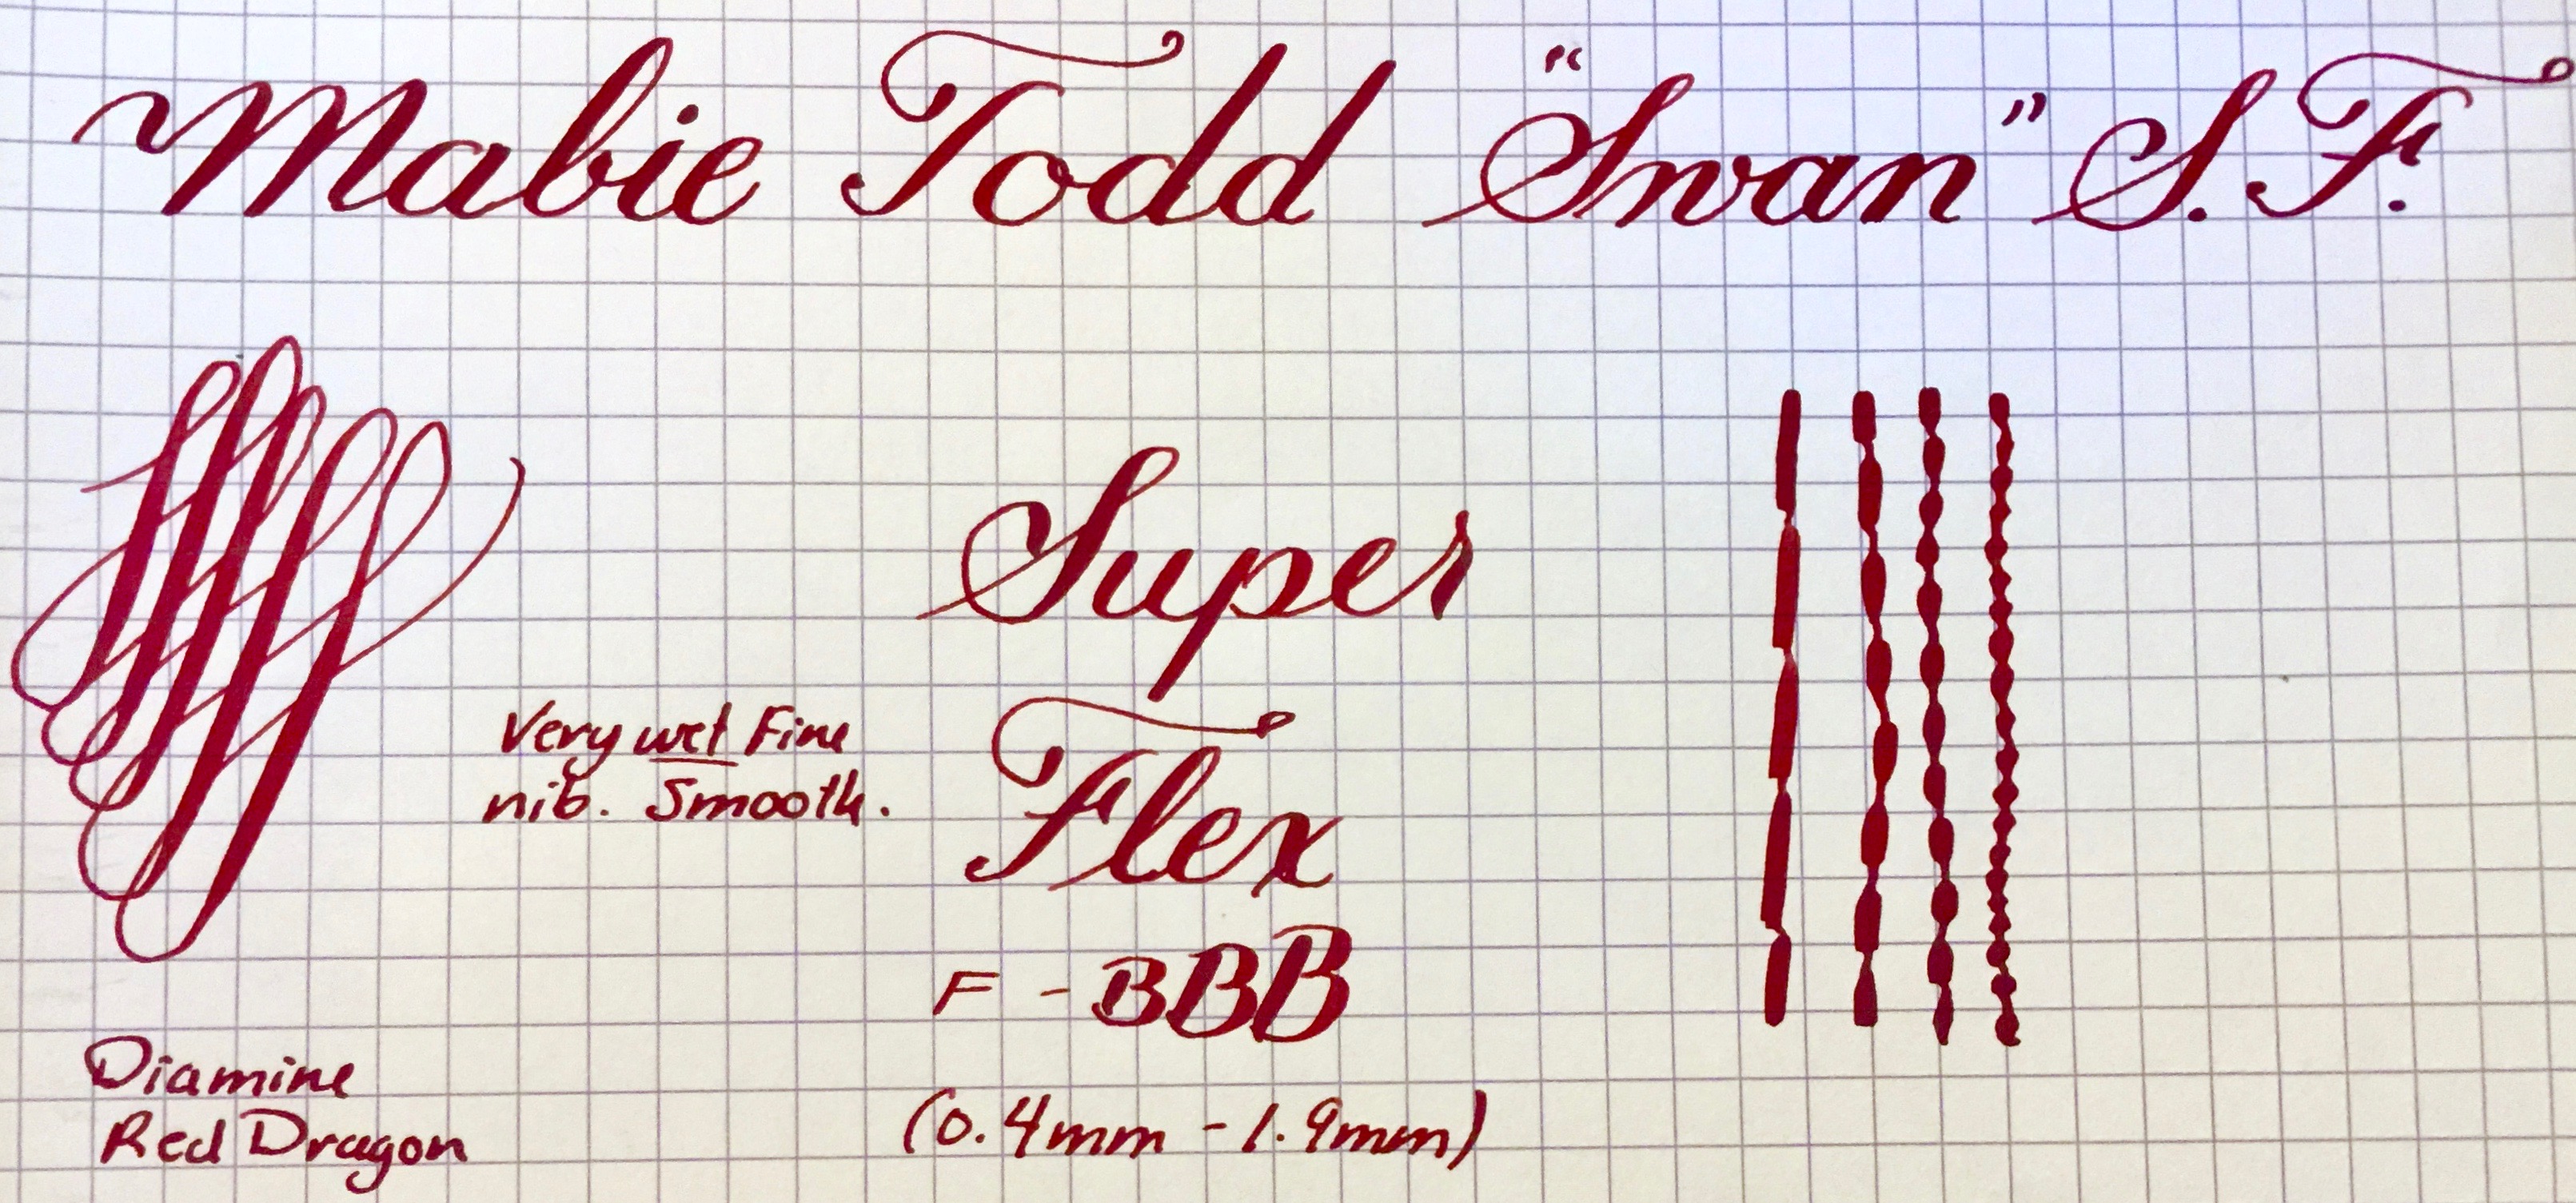 Mabie Todd "Swan" S.F.
Super
Flex
Very wet Fine
nib. Smooth.
F - BBB
(0.4mm - 1.9mm)
Diamine
Red Dragon